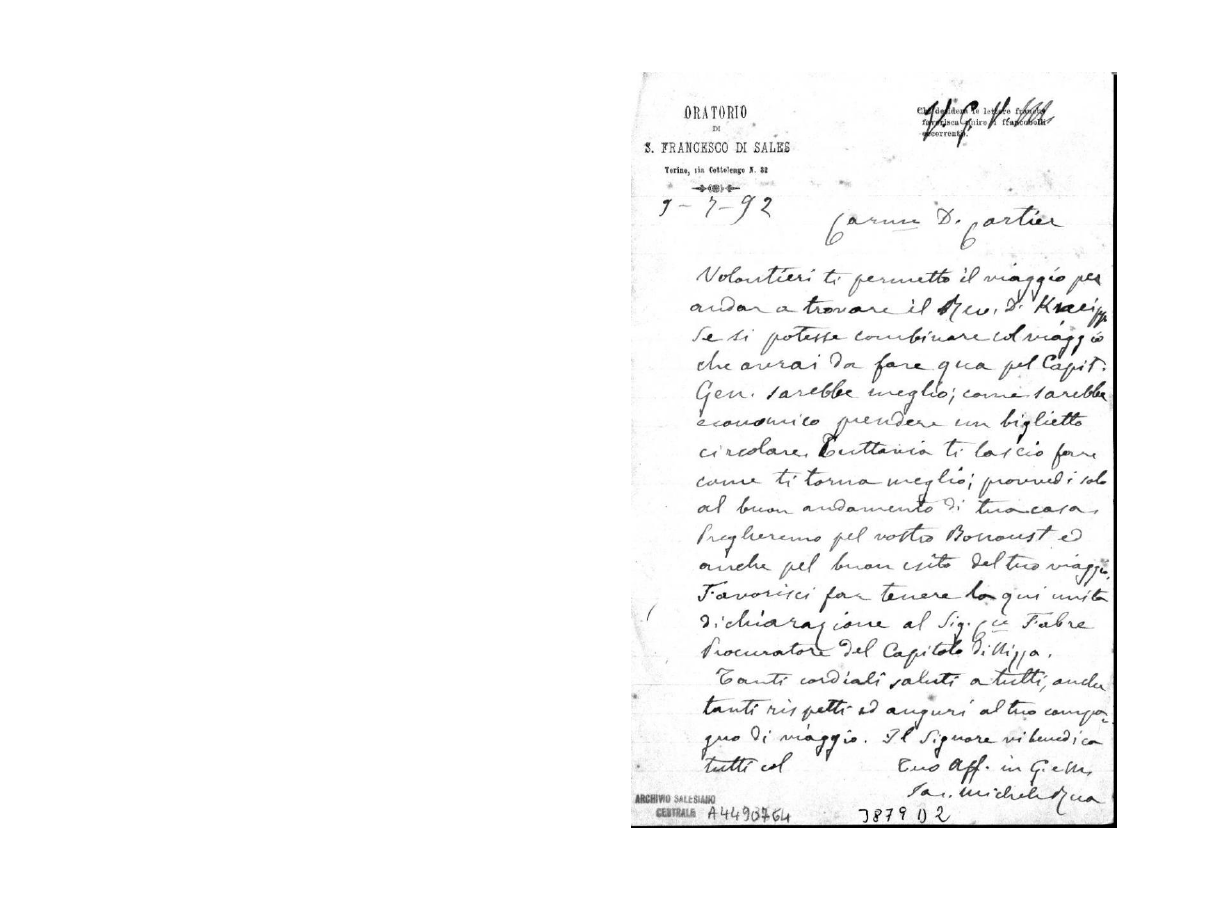 ORATORIO
DI
S. FRANCESCO DI SALES
Torino, via Cottolengo N. 32
Chi desidera le lettere
favorisca unire i francobolli
occorrenti.
9-7-92
Car.mo D. Cartier
Volontieri ti permetto il viaggio per
andar a trovare il Rev. D.
Se si potesse combinare col viaggio
che avrai da fare qua pel Capit.
Gen. sarebbe meglio; come sarebbe
economico prendere un biglietto
circolare. Tuttavia ti lascio fare
come ti torna meglio; provvedi solo
al buon andamento di tua casa.
Pregheremo pel vostro ed
anche pel buon esito del tuo viaggio.
Favorisci far tenere la qui unita
dichiarazione al Sig. Fabre
Procuratore del Capitolo di Nizza.
Tanti cordiali saluti a tutti, anche
tanti rispetti ed auguri al tuo compa-
gno di viaggio. Il Signore vi benedica
tutti col
Tuo Aff. in G. e M.
Sac. Michele Rua
ARCHIVIO SALESIANO
CENTRALE A4490764
3879 D 2